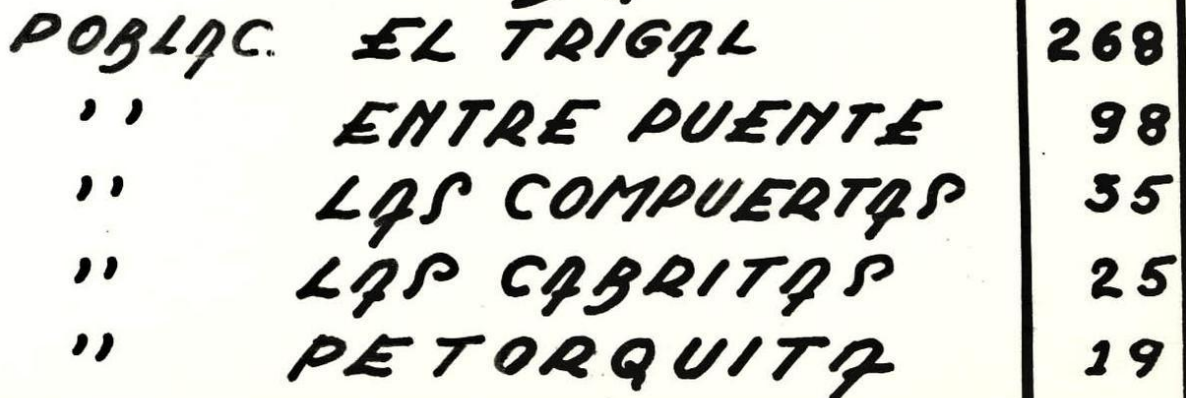 POBLAC. EL TRIGAL 268
'' ENTRE PUENTE 98
'' LAS COMPUERTAS 35
'' LAS CABRITAS 25
'' PETORQUITA 19